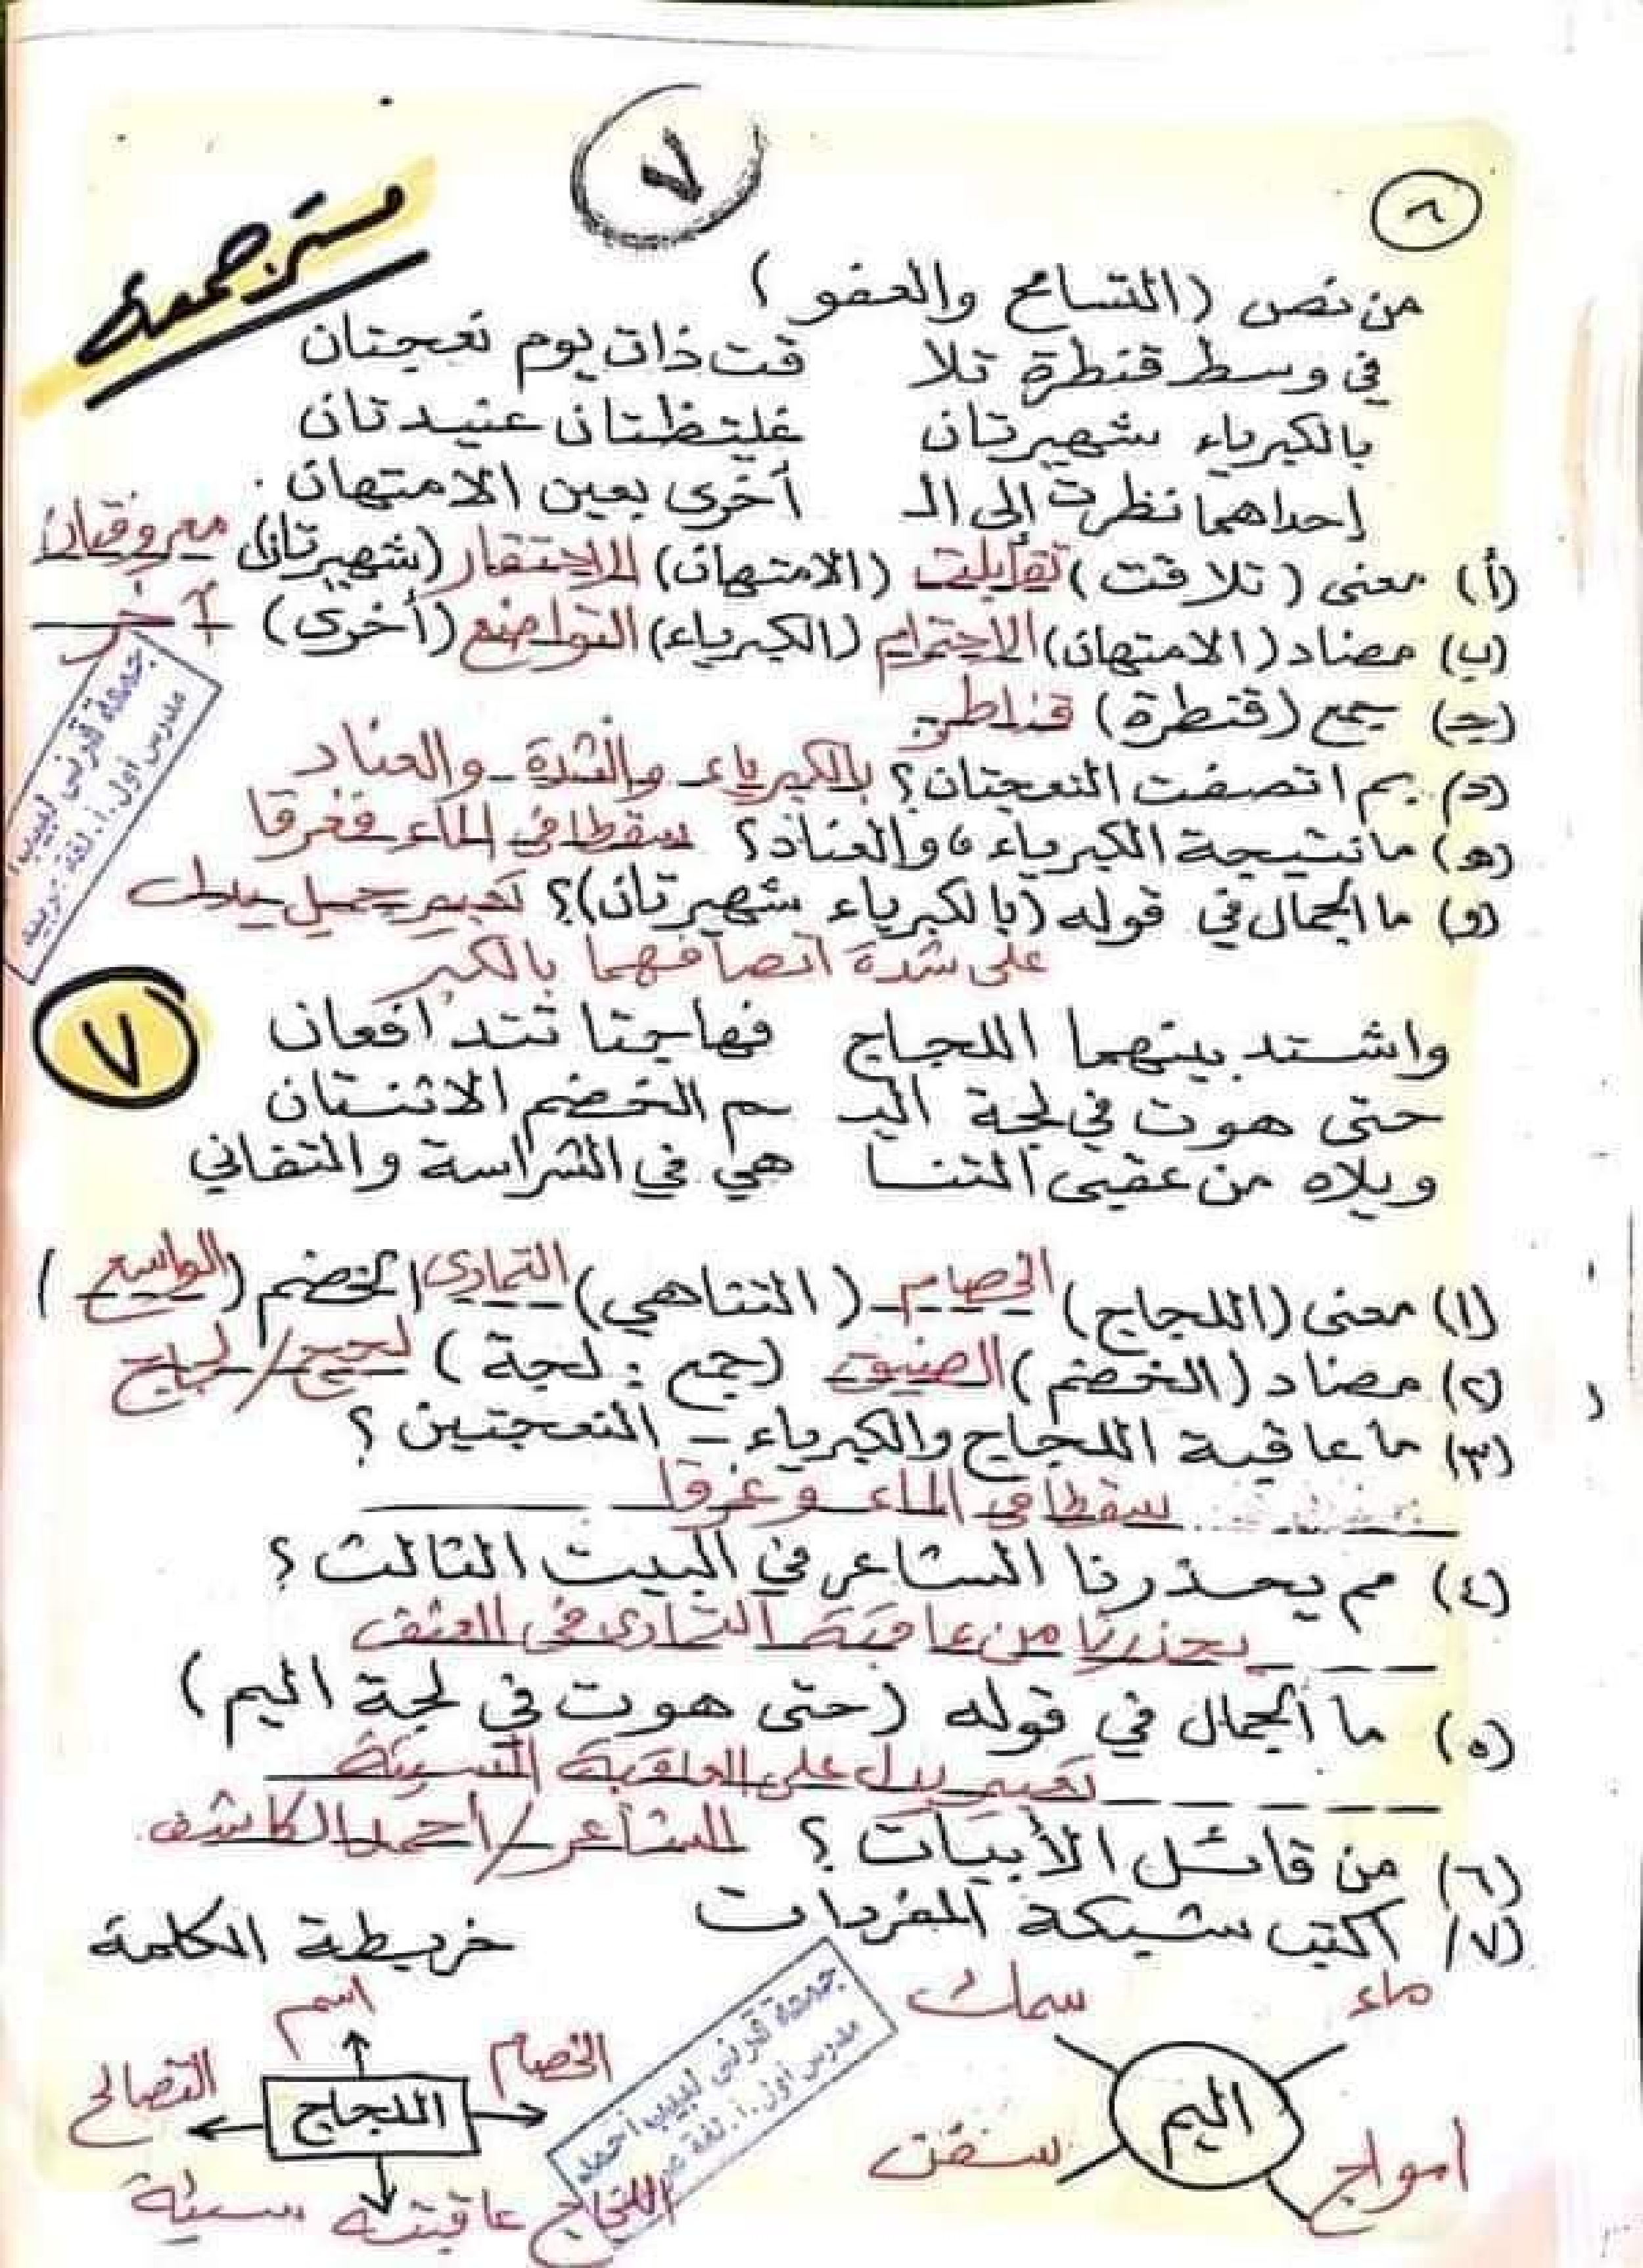 ٧
٨
مستر جمعة
من نص (التسامح والعفو)
في وسط قنطرة تلا قت ذات يوم نعجتان
بالكبرياء شهيرتان غليظتان عنيدتان
إحداهما نظرت إلى الـ أخرى بعين الامتهان.
(أ) معنى (تلاقت) تقابلت (الامتهان) الاحتقار (شهيرتان) معروفتان
(ب) مضاد (الامتهان) الاحترام (الكبرياء) التواضع (أخرى) آخر
(جـ) جمع (قنطرة) قناطر
(د) بم اتصفت النعجتان؟ بالكبرياء - والشدة - والعناد
(هـ) ما نتيجة الكبرياء، والعناد؟ سقطا في الماء فغرقا
(و) ما الجمال في قوله (بالكبرياء شهيرتان)؟ تعبير جميل يدل
على شدة اتصافهما بالكبر
جمعة قرني لبيب
مدرس أول.أ. لغة عربية
٧
واشتد بينهما اللجاج فهاجتا تتدافعان
حتى هوت في لجة اليـ ـم الخضم الاثنتان
ويلاه من عقبى التنا هي في الشراسة والتفاني
(١) معنى (اللجاج) الخصام (التناهي) التمادي الخضم (الواسع)
(٢) مضاد (الخضم) الضيق (جمع: لجة) لجج/لجاج
(٣) ما عاقبة اللجاج والكبرياء - النعجتين؟
سقطا في الماء وغرقا
(٤) مم يحذرنا الشاعر في البيت الثالث؟
يحذرنا من عاقبة التمادى فى العنف
(٥) ما الجمال في قوله (حتى هوت في لجة اليم)
تعبير يدل على العاقبة السيئة
(٦) من قائل الأبيات؟ الشاعر/أحمد الكاشف.
(٧) اكتب شبكة المفردات خريطة الكلمة
ماء سمك
اليم
أمواج سفن
اسم
الخصام اللجاج التصالح
اللجاج عاقبته سيئة
جمعة قرني لبيب أحمد
مدرس أول.أ. لغة عر